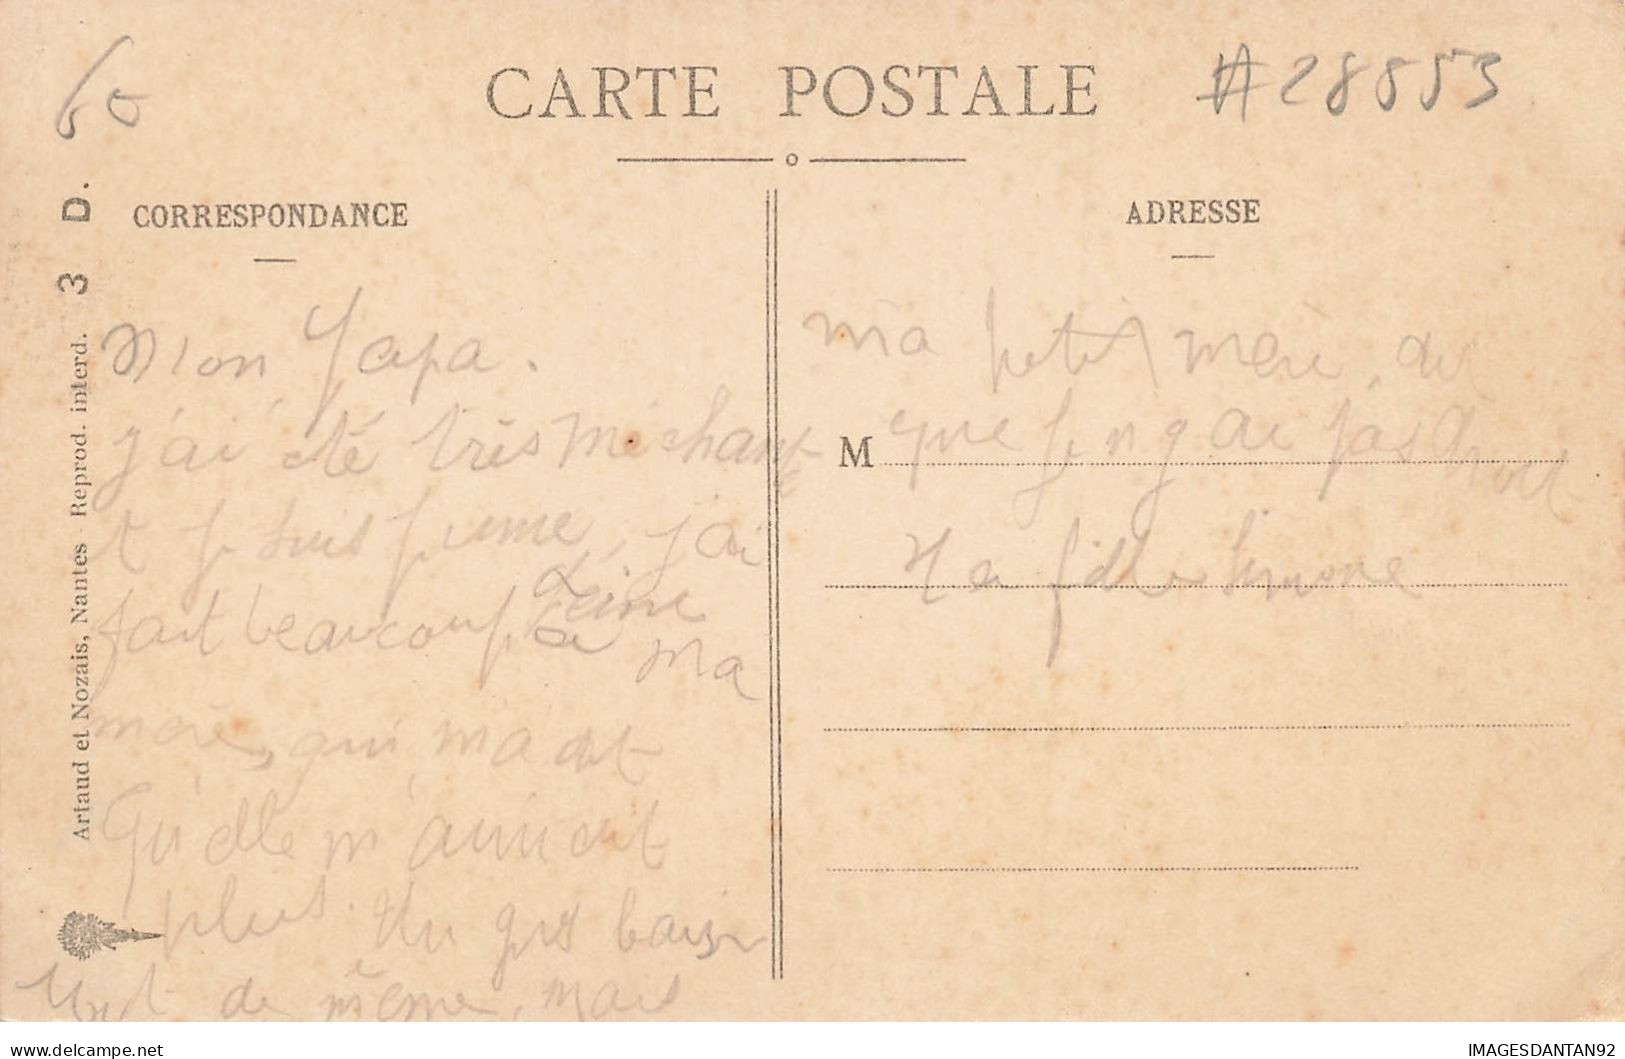 60
CARTE POSTALE
#28553
CORRESPONDANCE
ADRESSE
Artaud et Nozais, Nantes Reprod. interd. 3 D.
Mon Papa.
j'ai été très méchante
et je suis punie, j'ai
fait beaucoup de peine
a ma
mère, qui m'a dit
Qu'elle m'aimait
plus. Un gros baiser
tout de même, mais
ma petite mère, dit
M
que je n'y ai pas droit
Ta fille Simone
delcampe.net
IMAGESDANTAN92